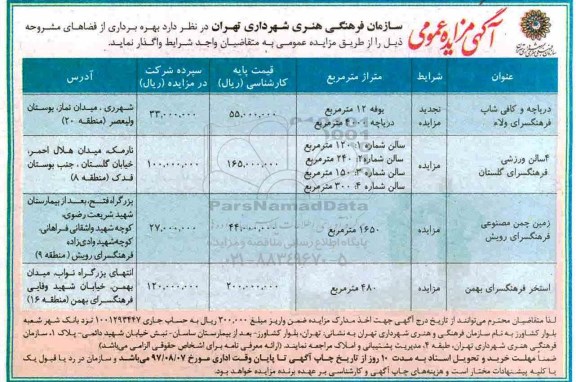 آگهی مزایده عمومی
سازمان فرهنگی هنری شهرداری تهران در نظر دارد بهره برداری از فضاهای مشروحه
ذیل را از طریق مزایده عمومی به متقاضیان واجد شرایط واگذار نماید.
عنوان
شرایط
متراژ مترمربع
قیمت پایه
کارشناسی (ریال)
سپرده شرکت
در مزایده (ریال)
آدرس
دریاچه و کافی شاپ
فرهنگسرای ولاء
تجدید
مزایده
بوفه ۱۲ مترمربع
دریاچه ۴۰۰ مترمربع
۵۵,۰۰۰,۰۰۰
۳۳,۰۰۰,۰۰۰
شهرری، میدان نماز، بوستان
ولیعصر (منطقه ۲۰)
۴سالن ورزشی
فرهنگسرای گلستان
مزایده
سالن شماره۱: ۱۲۰ مترمربع
سالن شماره۲: ۲۴۰ مترمربع
سالن شماره ۳: ۱۵۰ مترمربع
سالن شماره ۴: ۳۰۰ مترمربع
۱۶۵,۰۰۰,۰۰۰
۱۰۰,۰۰۰,۰۰۰
نارمک، میدان هلال احمر،
خیابان گلستان، جنب بوستان
فدک (منطقه ۸)
زمین چمن مصنوعی
فرهنگسرای رویش
مزایده
۱۶۵۰ مترمربع
۴۴,۰۰۰,۰۰۰
۲۷,۰۰۰,۰۰۰
بزرگراه فتح، بعد از بیمارستان
شهید شریعت رضوی،
کوچه شهید واشقانی فراهانی،
کوچه شهید وادی‌زاده،
فرهنگسرای رویش (منطقه ۹)
استخر فرهنگسرای بهمن
مزایده
۴۸۰ مترمربع
۲۰۰,۰۰۰,۰۰۰
۱۲۰,۰۰۰,۰۰۰
انتهای بزرگراه نواب، میدان
بهمن، خیابان شهید وفایی
فرهنگسرای بهمن (منطقه ۱۶)
ParsNamadData
پایگاه اطلاع رسانی مناقصه و مزایده
۰۲۱-۸۸۳۴۹۶۷۰-۵
لذا متقاضیان محترم می‌توانند از تاریخ درج آگهی جهت اخذ مدارک مزایده ضمن واریز مبلغ ۲۰۰,۰۰۰ ریال به حساب جاری ۱۰۰۱۲۹۳۴۴۷ نزد بانک شهر شعبه
بلوار کشاورز به نام سازمان فرهنگی و هنری شهرداری تهران به نشانی: تهران، بلوار کشاورز- بعد از بیمارستان ساسان- نبش خیابان شهید دائمی- پلاک ۱، سازمان
فرهنگی هنری شهرداری تهران، طبقه ۴، مدیریت پشتیبانی و املاک مراجعه نمایند. (ارائه معرفی نامه برای اشخاص حقوقی الزامی می‌باشد)
ضمناً مهلت خرید و تحویل اسناد به مدت ۱۰ روز از تاریخ چاپ آگهی تا پایان وقت اداری مورخ ۹۷/۰۸/۰۷ می‌باشد و سازمان در رد یا قبول یک
یا کلیه پیشنهادات مختار است و هزینه‌های چاپ آگهی و کارشناسی بر عهده برنده مزایده خواهد بود.